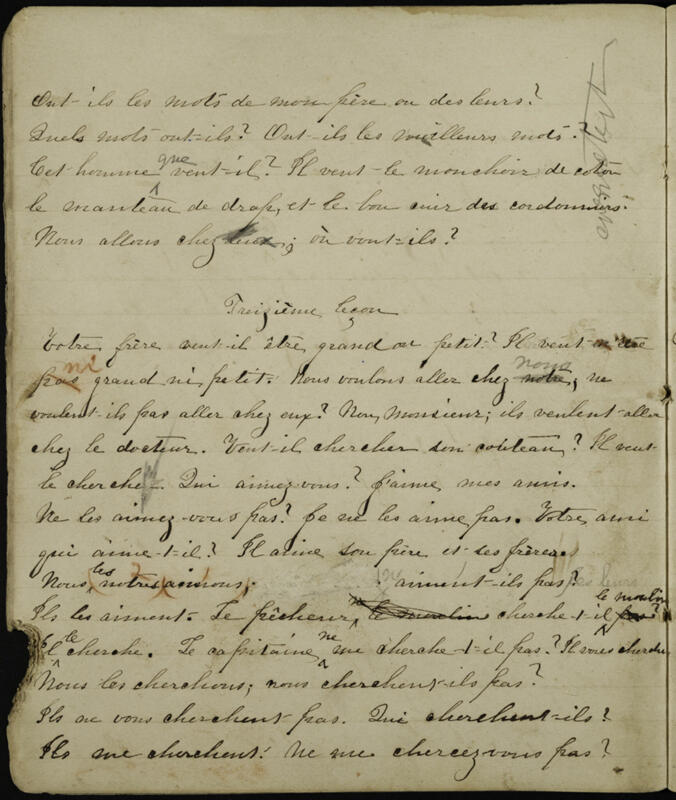 Ont-ils les mots de mon père ou des leurs?
Quels mots ont-ils? Ont-ils les meilleurs mots?
Cet homme que veut-il? Il veut le mouchoir de coton
le manteau de drap, et le bon cuir des cordonniers.
Nous allons chez eux; où vont-ils?
Treizième leçon
Votre frère veut-il être grand ou petit? Il veut n'être
ni grand ni petit. Nous voulons aller chez nous, ne
veulent-ils pas aller chez eux? Non, monsieur; ils veulent aller
chez le docteur. Veut-il chercher son couteau? Il veut
le cherche. Qui aimez-vous? J'aime mes amis.
Ne les aimez-vous pas? Je ne les aime pas. Votre ami
qui aime-t-il? Il aime son père et ses frères.
Nous les notres aimons, aiment-ils pas? les leurs
Ils les aiment. Le pêcheur ne le moulin cherche-t-il le moulin pas?
Il le cherche. Le capitaine ne me cherche-t-il pas? Il vous cherche.
Nous les cherchons; nous cherchent-ils pas?
Ils ne vous cherchent pas. Qui cherchent-ils?
Ils me cherchent. Ne me chercez-vous pas?